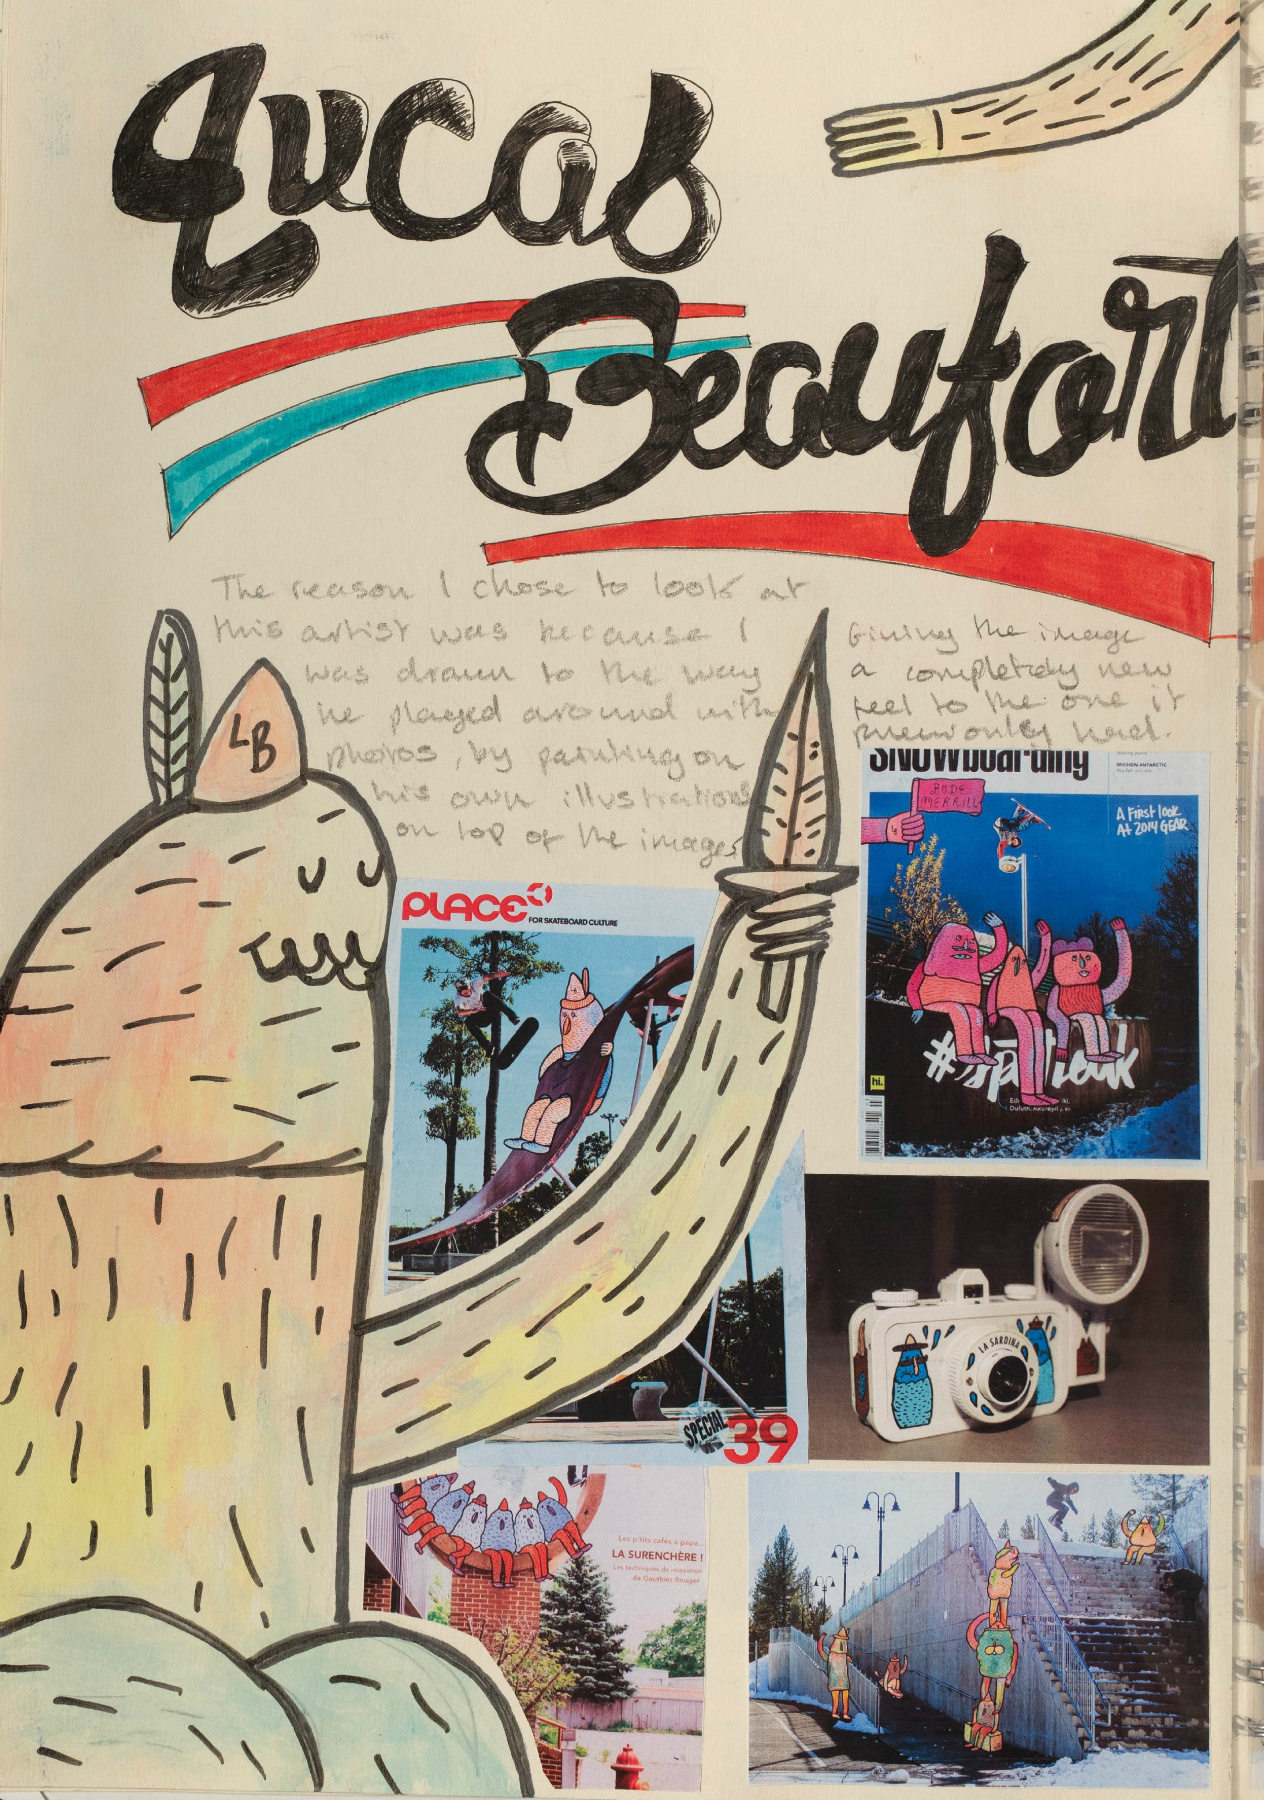 Lucas
Beaufort
The reason I chose to look at
this artist was because I
was drawn to the way
he played around with
photos, by painting on
his own illustrations
on top of the images
Giving the image
a completely new
feel to the one it
previously had.
LB
PLACE
FOR SKATEBOARD CULTURE
SPECIAL
39
SNOWboarding
MISSION ANTARCTIC
BODE
MERRILL
A First look
At 2014 GEAR
hi.
LA SARDINA
Les p'tits cafés à papa...
LA SURENCHÈRE !
Les techniques de relaxation
de Gauthier Rouger